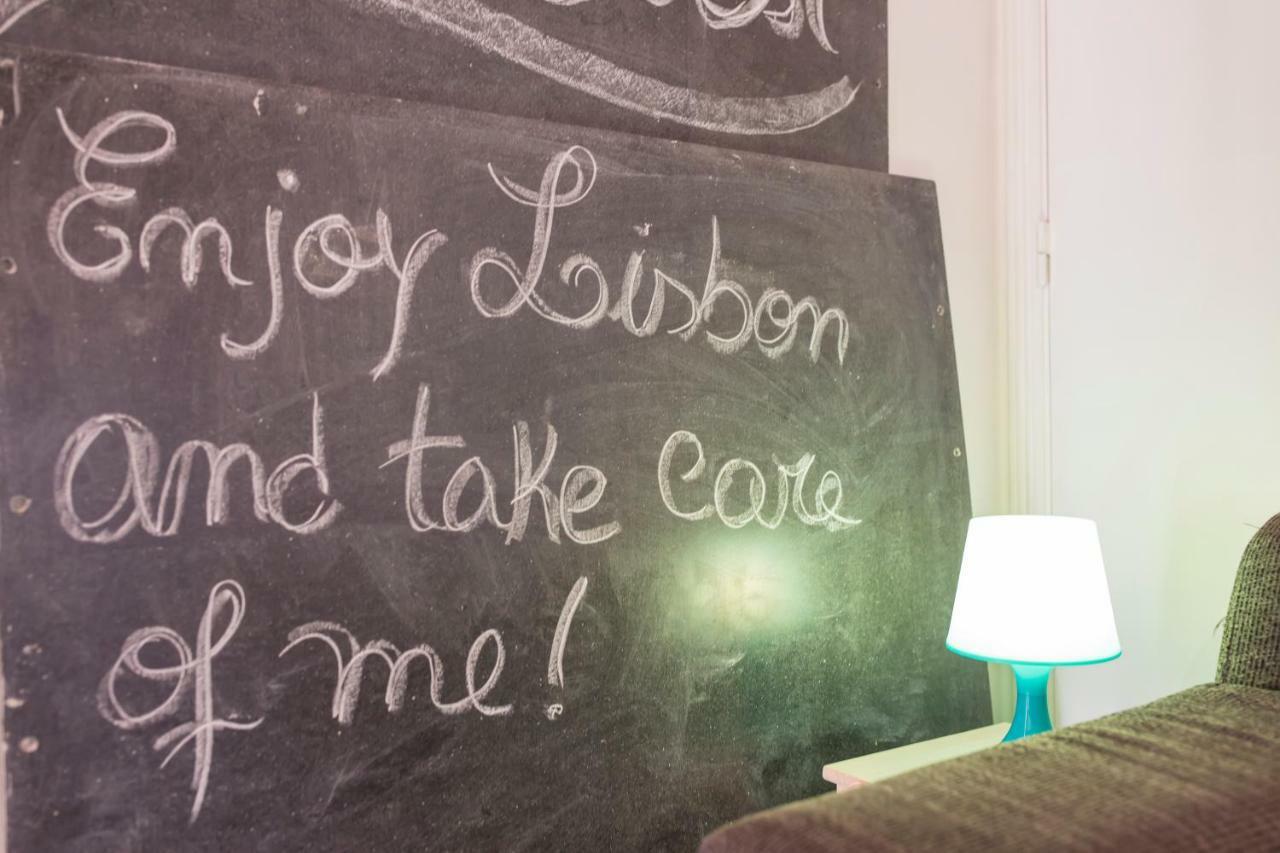 Enjoy Lisbon
and take care
of me!